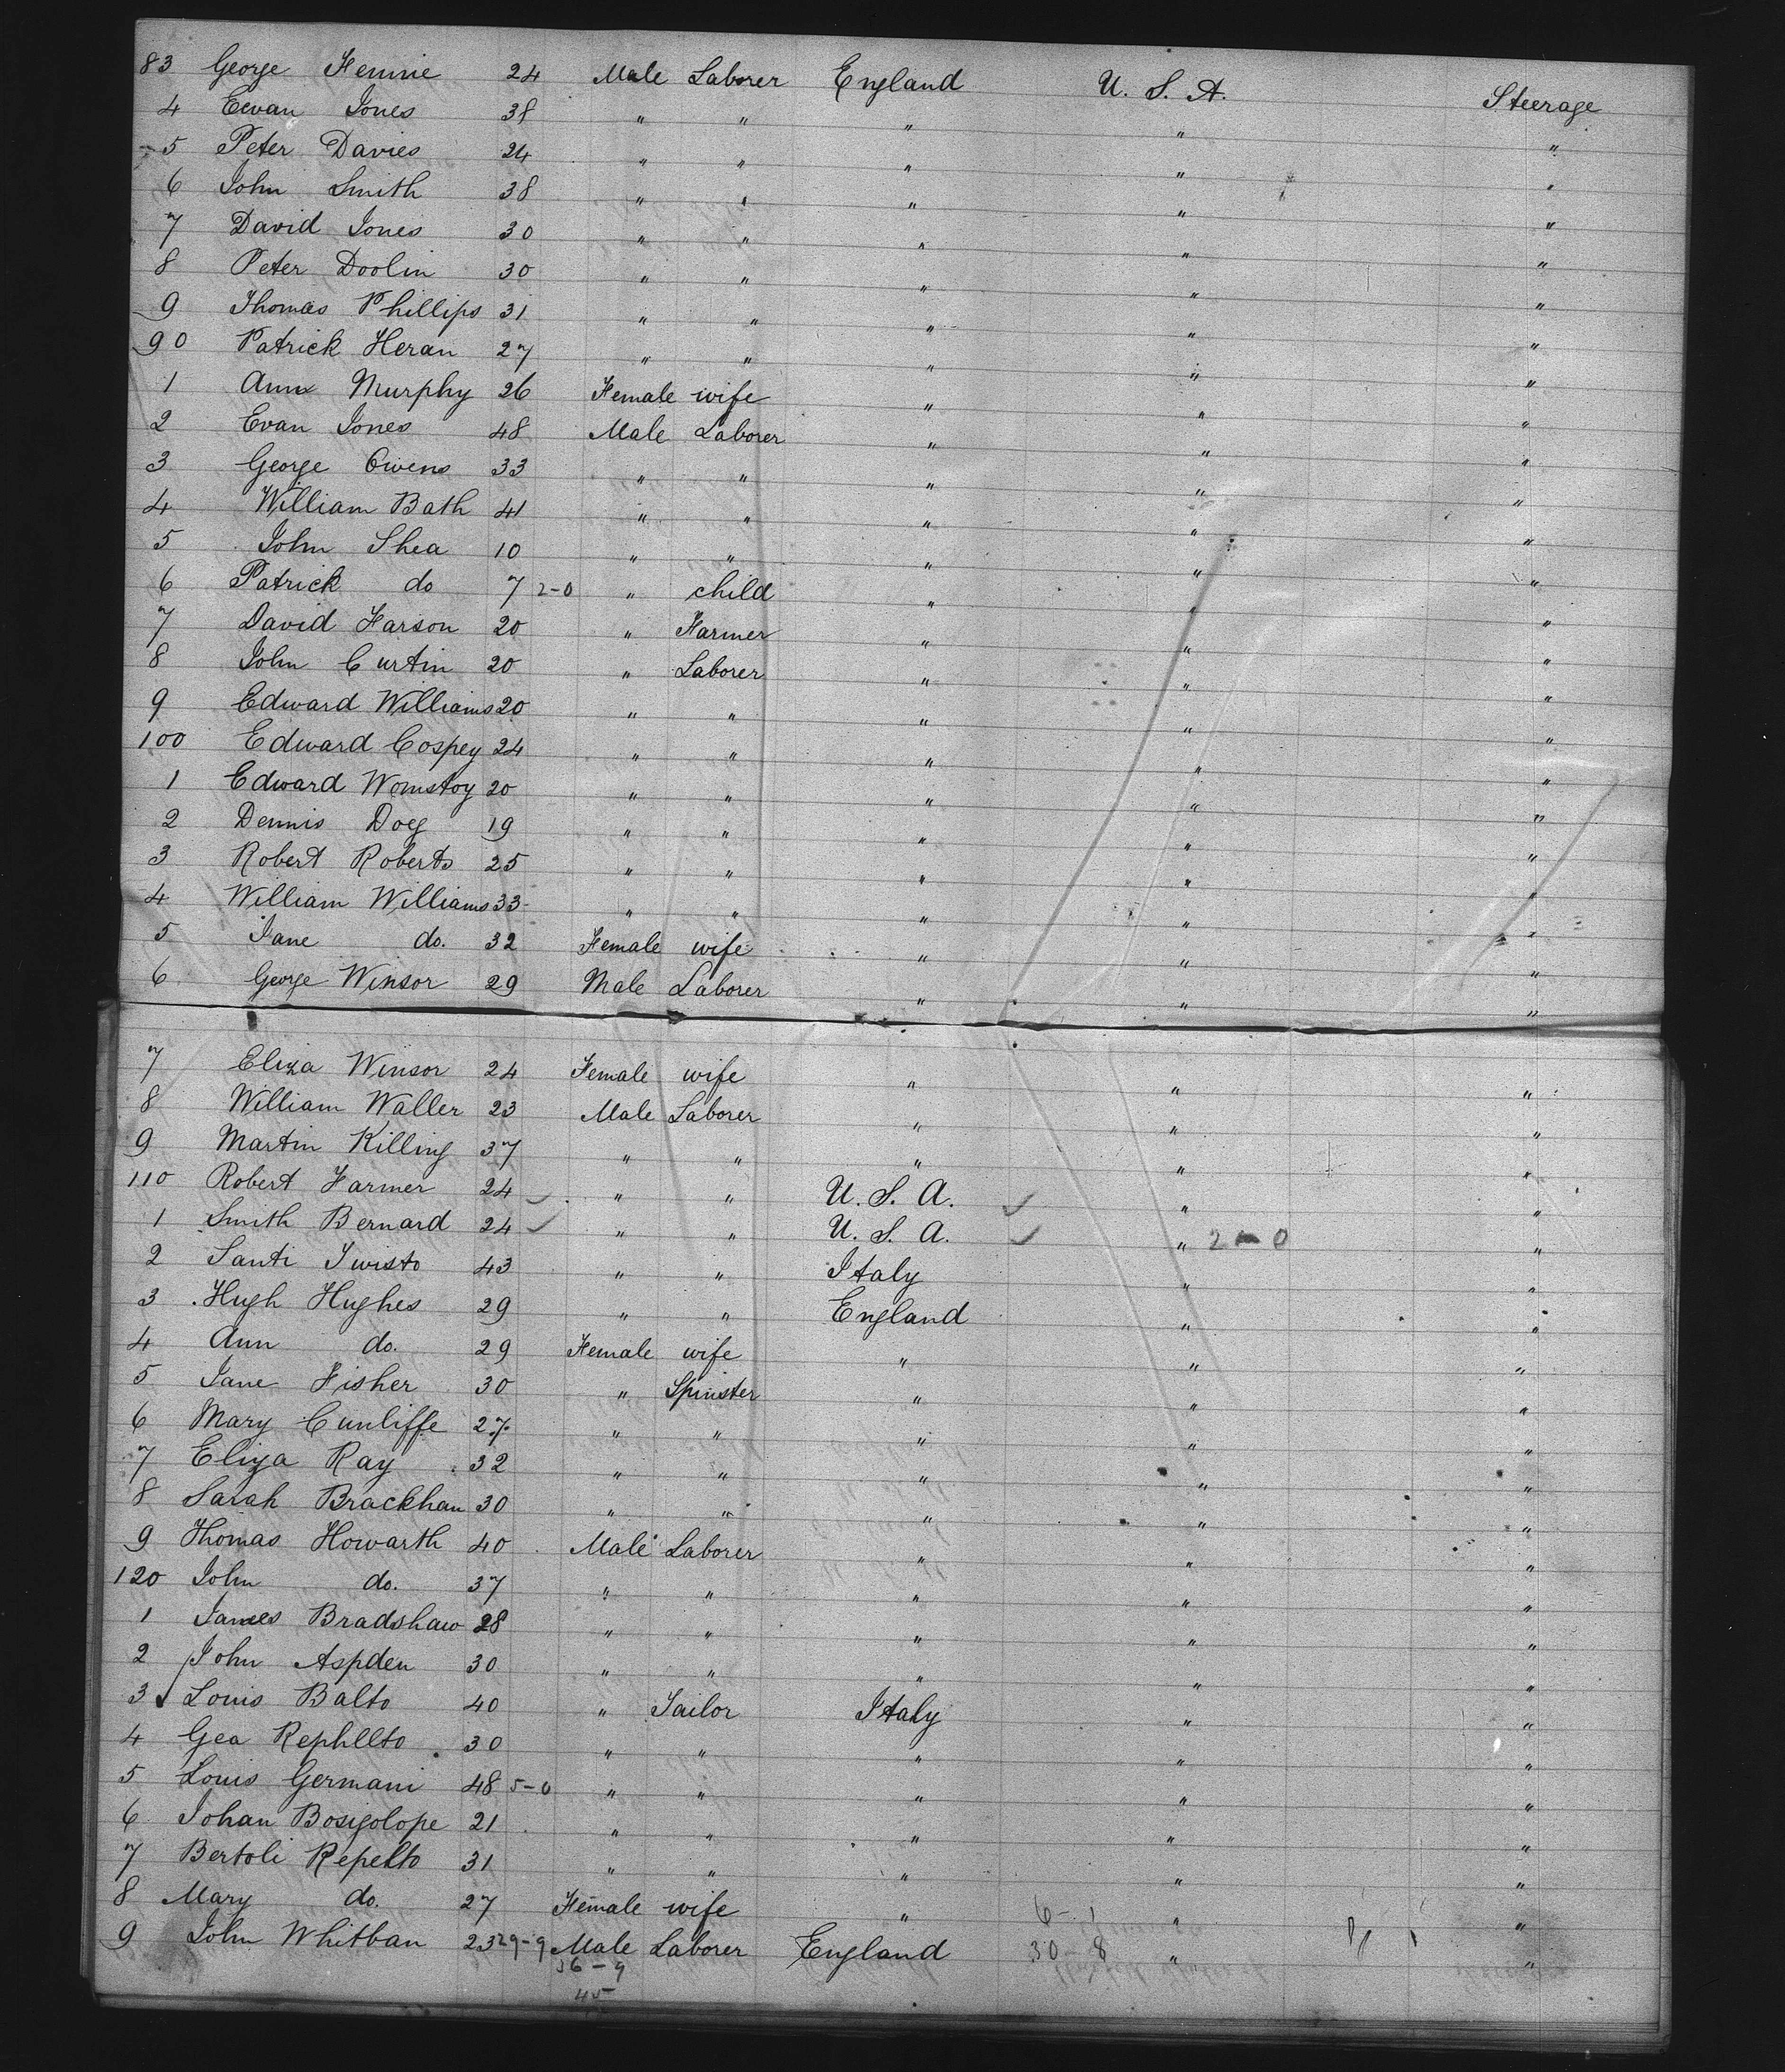 83 George Fennie 24 Male Laborer England U. S. A. Steerage
4 Ewan Jones 38 " " " " "
5 Peter Davies 24 " " " " "
6 John Smith 38 " " " " "
7 David Jones 30 " " " " "
8 Peter Doolin 30 " " " " "
9 Thomas Phillips 31 " " " " "
90 Patrick Heran 27 " " " " "
1 Ann Murphy 26 Female wife " " "
2 Evan Jones 48 Male Laborer " " "
3 George Owens 33 " " " " "
4 William Bath 41 " " " " "
5 John Shea 10 " " " " "
6 Patrick do 7 2-0 " child " " "
7 David Farson 20 " Farmer " " "
8 John Curtin 20 " Laborer " " "
9 Edward Williams 20 " " " " "
100 Edward Cospey 24 " " " " "
1 Edward Womstoy 20 " " " " "
2 Dennis Doeg 19 " " " " "
3 Robert Roberts 25 " " " " "
4 William Williams 33 " " " " "
5 Jane do. 32 Female wife " " "
6 George Winsor 29 Male Laborer " " "
7 Eliza Winsor 24 Female wife " " "
8 William Waller 23 Male Laborer " " "
9 Martin Killing 37 " " " " "
110 Robert Farmer 24 " " U. S. A. " "
1 Smith Bernard 24 " " U. S. A. " 2-0 "
2 Santi Twisto 43 " " Italy " "
3 Hugh Hughes 29 " " England " "
4 Ann do. 29 Female wife " " "
5 Jane Fisher 30 " Spinster " " "
6 Mary Cunliffe 27 " " " " "
7 Eliza Ray 32 " " " " "
8 Sarah Brackhan 30 " " " " "
9 Thomas Howarth 40 Male Laborer " " "
120 John do. 37 " " " " "
1 James Bradshaw 28 " " " " "
2 John Aspden 30 " " " " "
3 Louis Balto 40 " Tailor Italy " "
4 Gea Rephllto 30 " " " " "
5 Louis Germani 48 5-0 " " " " "
6 Johan Bosigolope 21 " " " " "
7 Bertoli Repetto 31 " " " " "
8 Mary do. 27 Female wife " 6-1 " "
9 John Whitban 23 29-9 Male Laborer England 30-8 " "
36-9
45